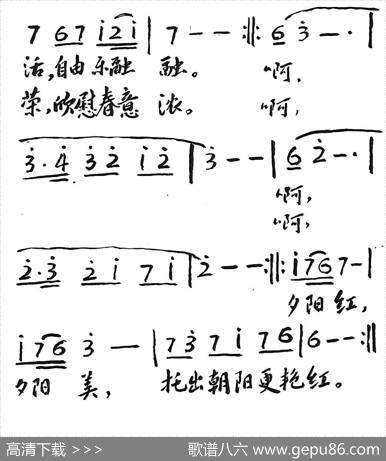 7 67 i2i | 7 - - :||: 6 3 - · |
活,自由乐融 融。 啊,
荣,欣慰春意 浓。 啊,
3·4 32 i2 | 3 - - | 6 2 - · |
啊,
啊,
2·3 2i 7i | 2 - - :||: i76 7 - |
夕阳红,
i76 3 — | 73 7i 76 | 6 - - :||
夕阳 美, 托出朝阳更艳红。
高清下载 >>>
歌谱八六 www.gepu86.com